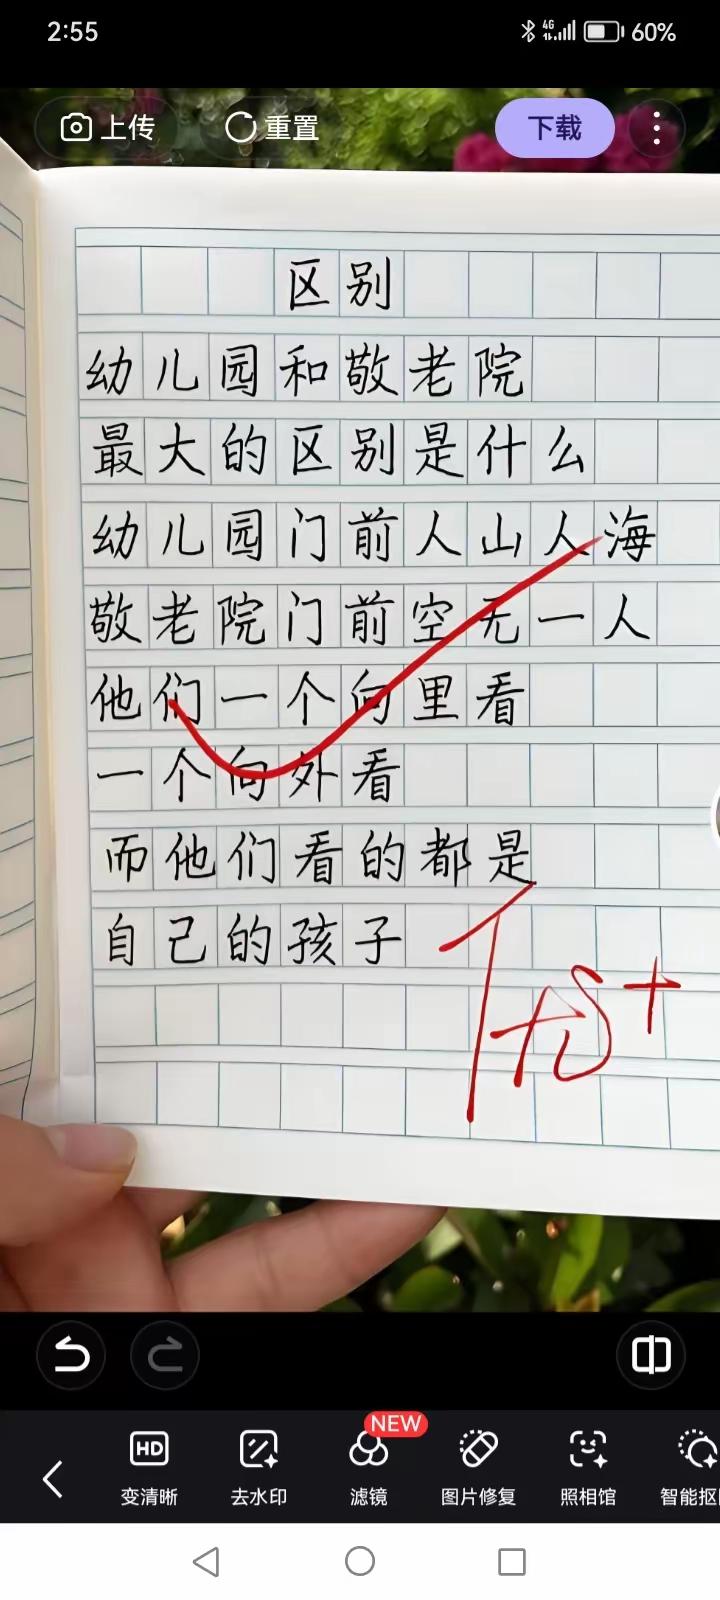 2:55
4G
60%
上传
重置
下载
区别
幼儿园和敬老院
最大的区别是什么
幼儿园门前人山人海
敬老院门前空无一人
他们一个向里看
一个向外看
而他们看的都是
自己的孩子
HD
NEW
变清晰
去水印
滤镜
图片修复
照相馆
智能抠